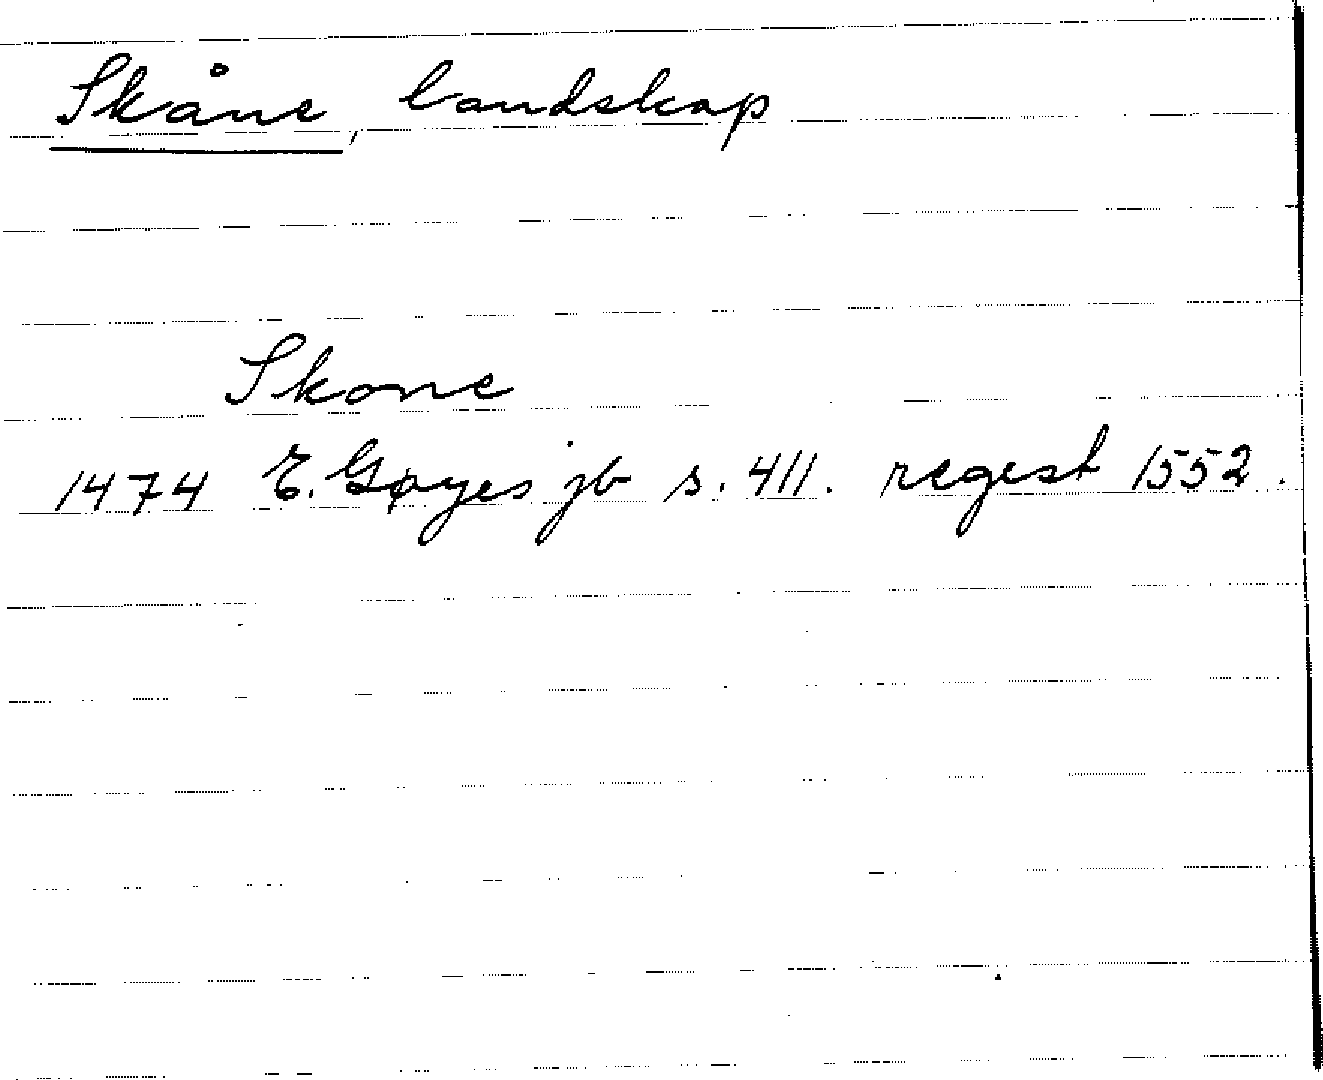 Skåne, landskap
Skone
1474 E. Gøyes jb s. 411. regest 1552.